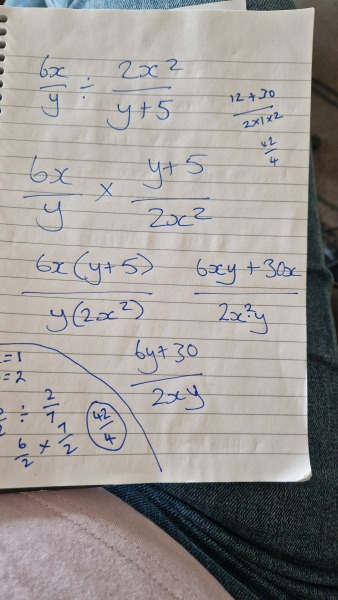 6x/y ÷ 2x²/y+5
12+30/2×1×2
42/4
6x/y × y+5/2x²
6x(y+5)/y(2x²)
6xy+30x/2x²y
6y+30/2xy
=1
=2
÷ 2/7
6/2 × 7/2
42/4